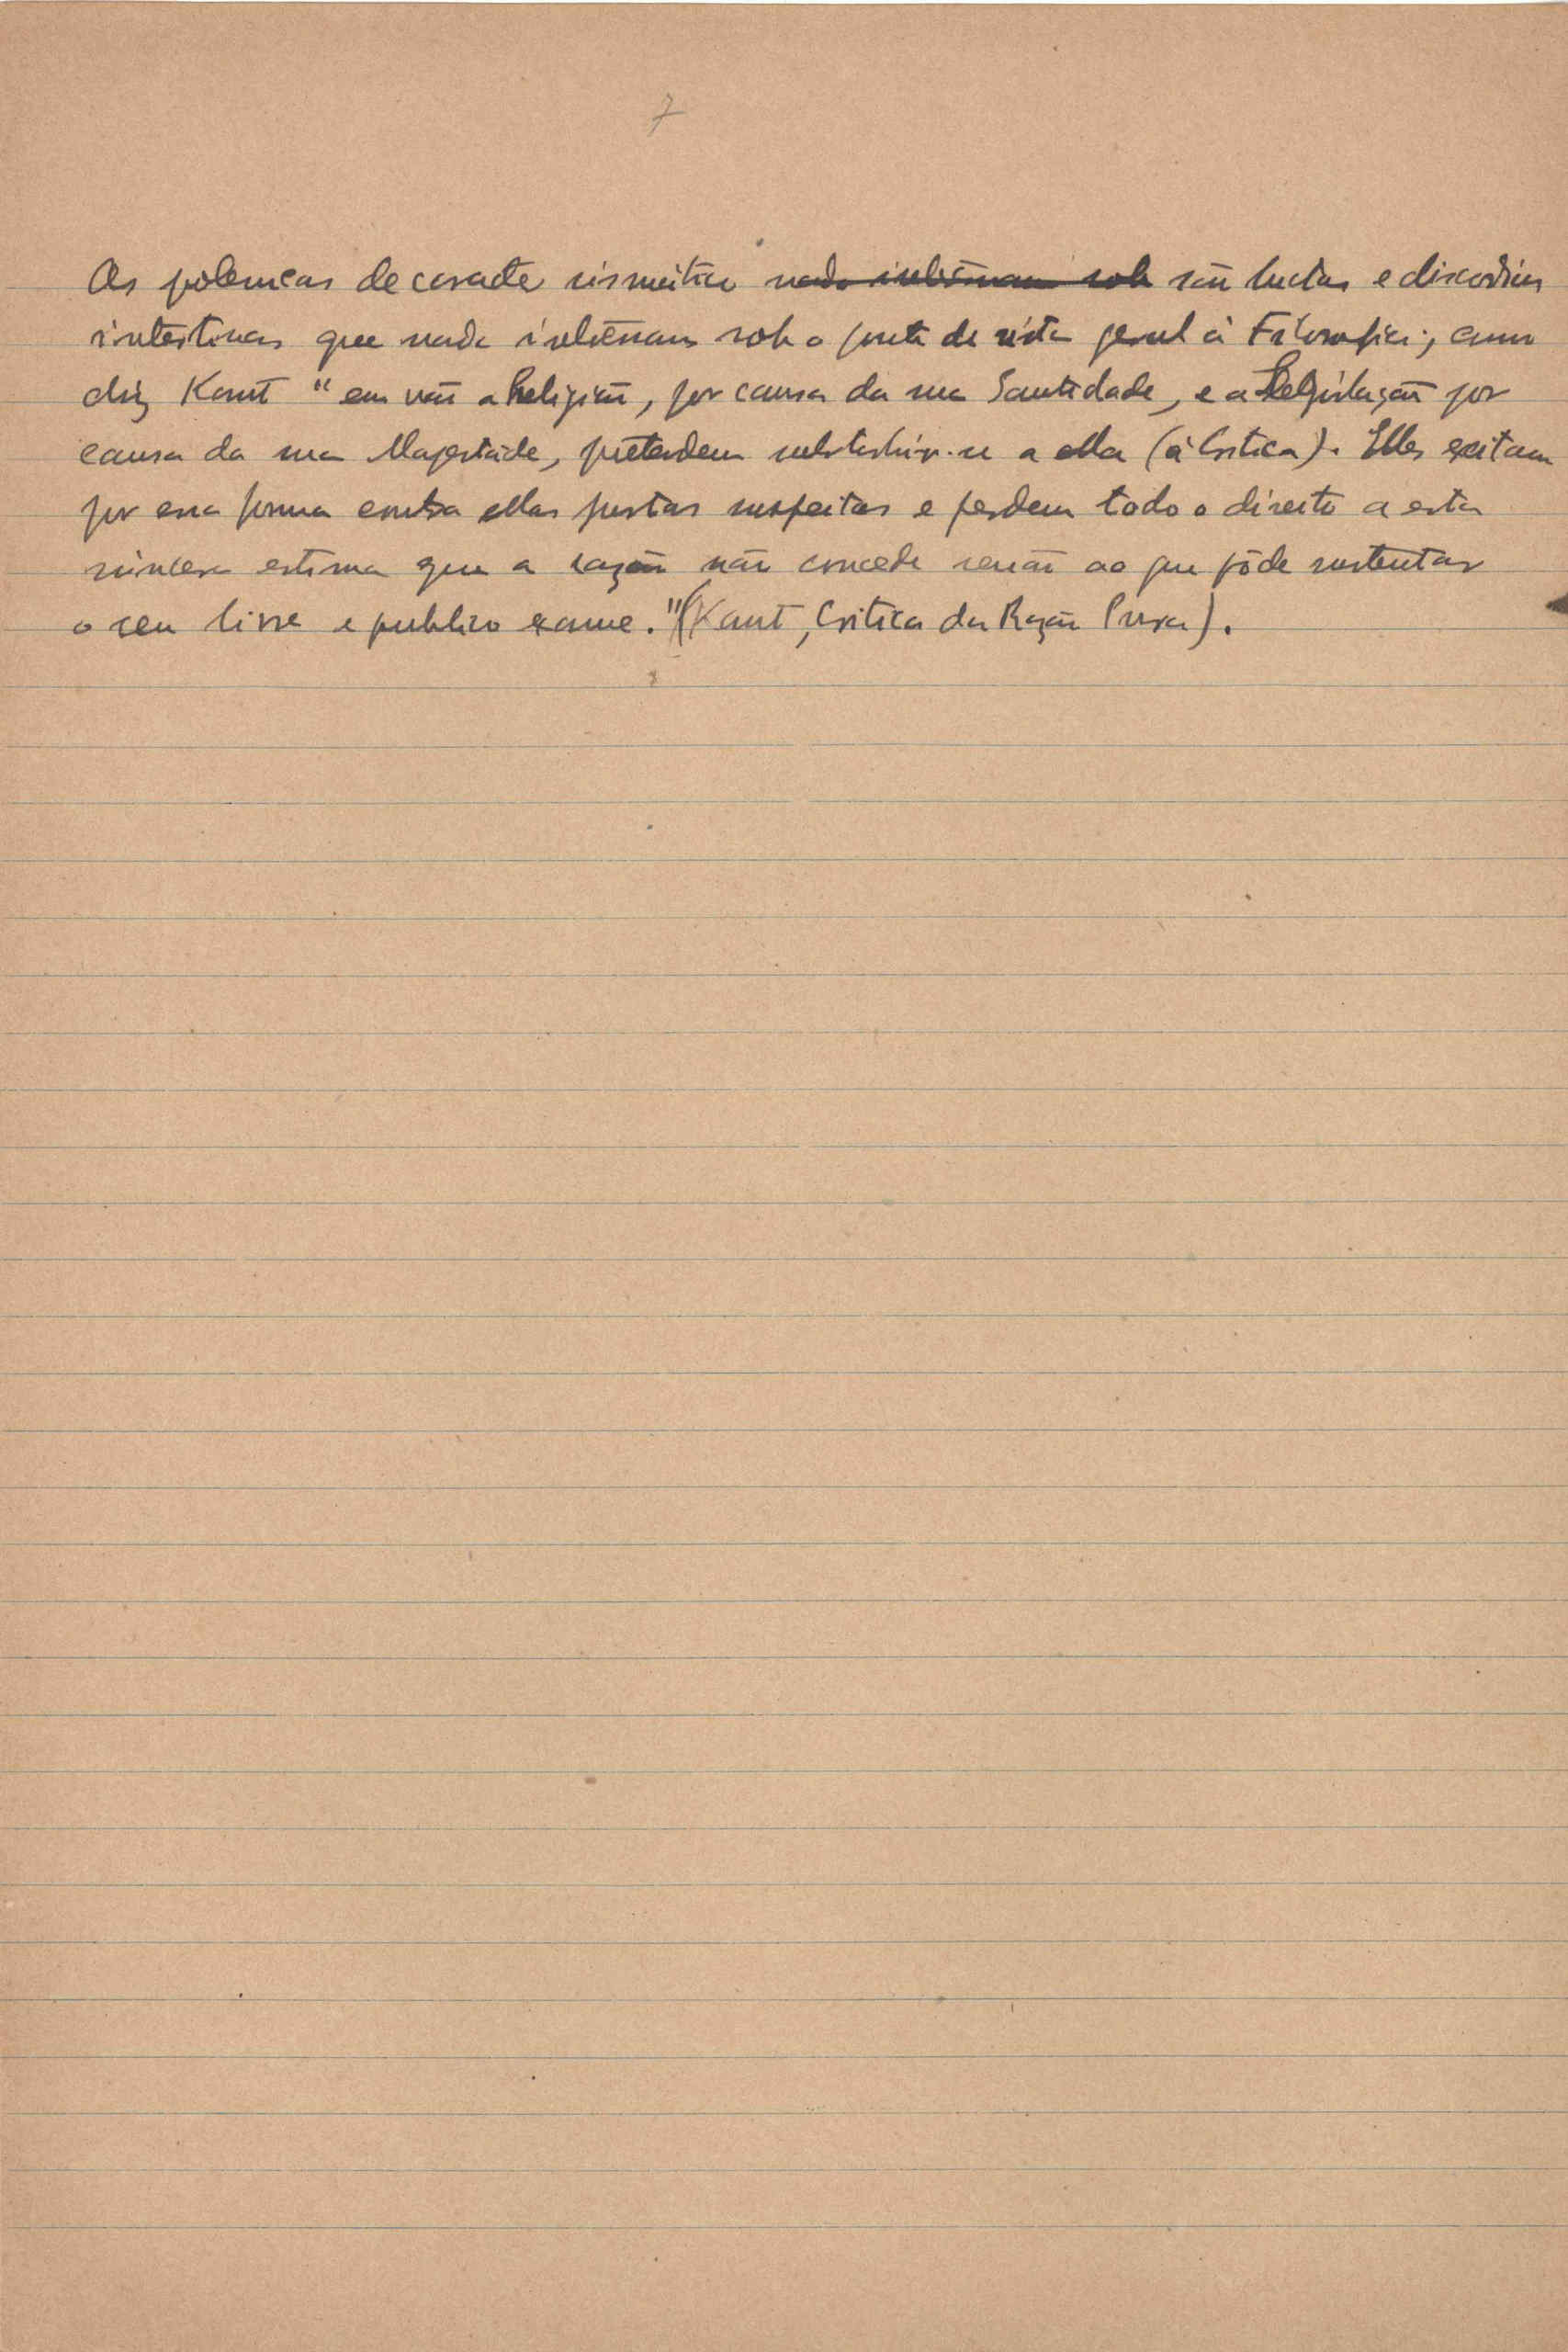 7
As polemicas de caracter cismatico nada interessam sob são luctas e discordias
intestinas que nada interessam sob o ponto de vista geral á Filosofia; como
diz Kant "em vão a Religião, por causa da sua Santidade, e a Legislação por
causa da sua Magestade, pretendem subtrahir-se a ella (á Critica). Elles exitam
por essa forma contra ellas justas suspeitas e perdem todo o direito a esta
sincera estima que a razão não concede senão ao que póde sustentar
o seu livre e publico exame." (Kant, Critica da Razão Pura).